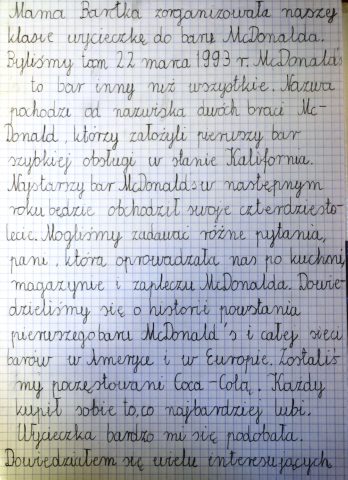 Mama Bartka zorganizowała naszej
klasie wycieczkę do baru McDonalda.
Byliśmy tam 22 marca 1993 r. McDonald's
to bar inny niż wszystkie. Nazwa
pochodzi od nazwiska dwóch braci Mc-
Donald, którzy założyli pierwszy bar
szybkiej obsługi w stanie Kalifornia.
Najstarszy bar McDonald's w następnym
roku będzie obchodził swoje czterdziesto-
lecie. Mogliśmy zadawać różne pytania,
pani, która oprowadzała nas po kuchni,
magazynie i zapleczu McDonalda. Dowie-
dzieliśmy się o historii powstania
pierwszego baru McDonald's i całej sieci
barów w Ameryce i w Europie. Zostaliś-
my poczęstowani Coca-Colą. Każdy
kupił sobie to, co najbardziej lubi.
Wycieczka bardzo mi się podobała.
Dowiedziałem się wielu interesujących